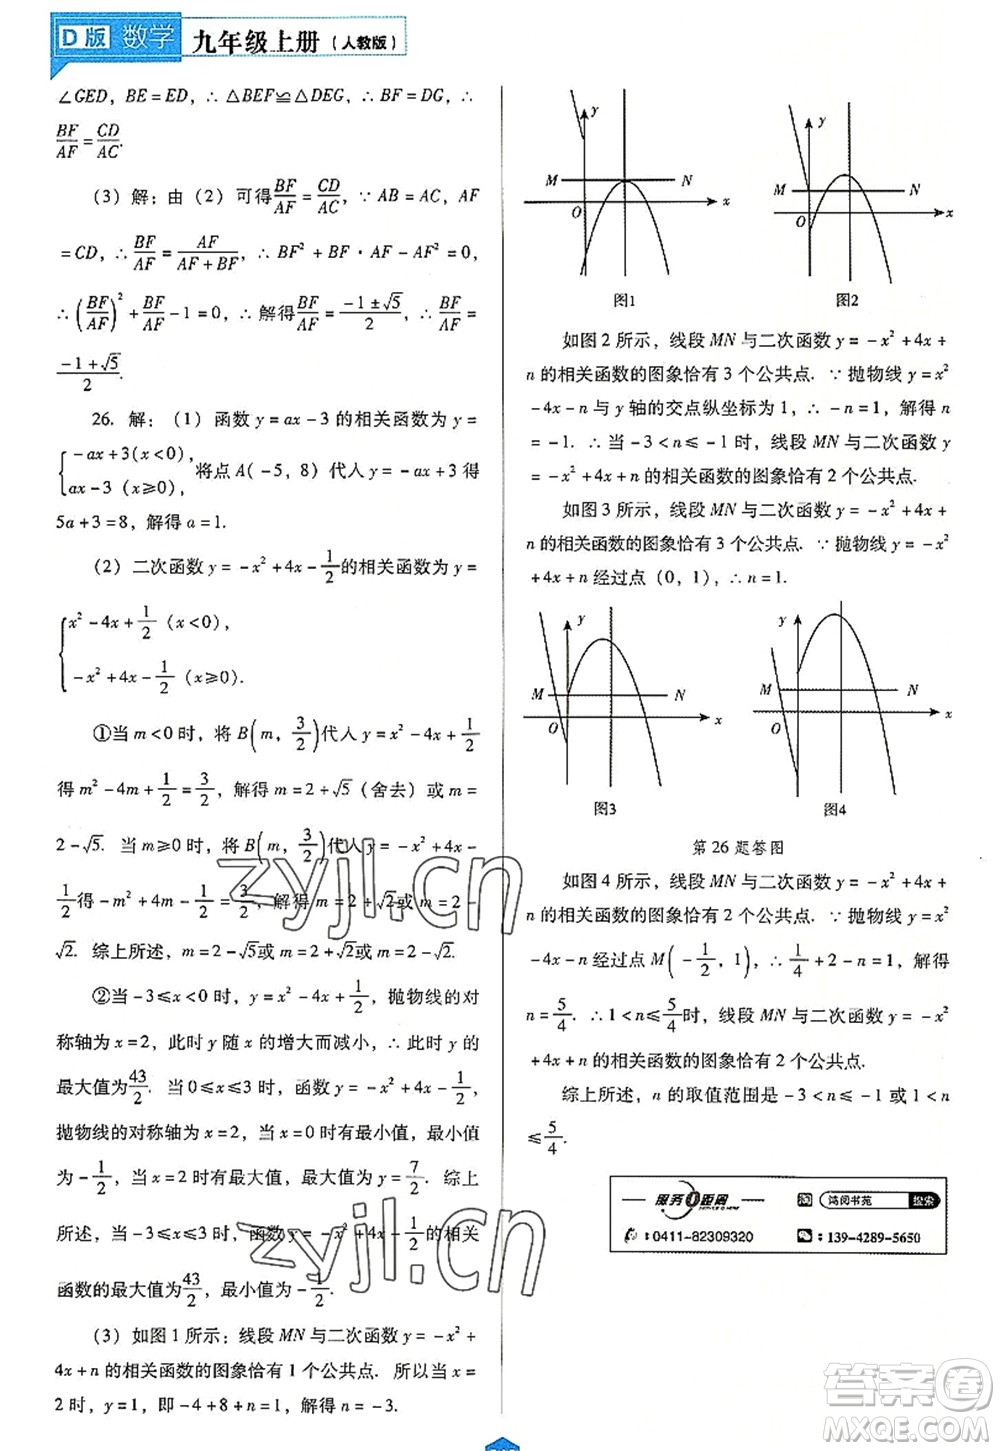 D版 数学 九年级上册（人教版）
∠GED，BE=ED，∴△BEF≌△DEG，∴BF=DG，∴
BF/AF=CD/AC.
（3）解：由（2）可得BF/AF=CD/AC，∵AB=AC，AF
=CD，∴BF/AF=AF/(AF+BF)，∴BF²+BF·AF-AF²=0，
∴(BF/AF)²+BF/AF-1=0，∴解得BF/AF=(-1±√5)/2，∴BF/AF=
(-1+√5)/2.
26. 解：（1）函数y=ax-3的相关函数为y=
{-ax+3(x<0)，ax-3（x≥0），将点A(-5，8）代人y=-ax+3得
5a+3=8，解得a=1.
（2）二次函数y=-x²+4x-1/2的相关函数为y=
{x²-4x+1/2（x<0），
-x²+4x-1/2（x≥0）.
①当m<0时，将B(m，3/2)代人y=x²-4x+1/2
得m²-4m+1/2=3/2，解得m=2+√5（舍去）或m=
2-√5. 当m≥0时，将B(m，3/2)代人y=-x²+4x-
1/2得-m²+4m-1/2=3/2，解得m=2+√2或m=2-
√2. 综上所述，m=2-√5或m=2+√2或m=2-√2.
②当-3≤x<0时，y=x²-4x+1/2，抛物线的对
称轴为x=2，此时y随x的增大而减小，∴此时y的
最大值为43/2. 当0≤x≤3时，函数y=-x²+4x-1/2，
抛物线的对称轴为x=2，当x=0时有最小值，最小值
为-1/2，当x=2时有最大值，最大值为y=7/2. 综上
所述，当-3≤x≤3时，函数y=-x²+4x-1/2的相关
函数的最大值为43/2，最小值为-1/2.
（3）如图1所示；线段MN与二次函数y=-x²+
4x+n的相关函数的图象恰有1个公共点. 所以当x=
2时，y=1，即-4+8+n=1，解得n=-3.
y
M N
O x
图1
y
M N
O x
图2
如图2所示，线段MN与二次函数y=-x²+4x+
n的相关函数的图象恰有3个公共点. ∵抛物线y=x²
-4x-n与y轴的交点纵坐标为1，∴-n=1，解得n
=-1. ∴当-3<n≤-1时，线段MN与二次函数y
=-x²+4x+n的相关函数的图象恰有2个公共点.
如图3所示，线段MN与二次函数y=-x²+4x+
n的相关函数的图象恰有3个公共点. ∵抛物线y=-x²
+4x+n经过点（0，1），∴n=1.
y
M N
O x
图3
y
M N
O x
图4
第26题答图
如图4所示，线段MN与二次函数y=-x²+4x+
n的相关函数的图象恰有2个公共点. ∵抛物线y=x²
-4x-n经过点M(-1/2，1)，∴1/4+2-n=1，解得
n=5/4. ∴1<n≤5/4时，线段MN与二次函数y=-x²
+4x+n的相关函数的图象恰有2个公共点.
综上所述，n的取值范围是-3<n≤-1或1<n
≤5/4.
服务0距离 鸿阅书苑 搜索
：0411-82309320 ：139-4289-5650
zyjl.cn
zyjl.cn
答案圈
MXQE.COM